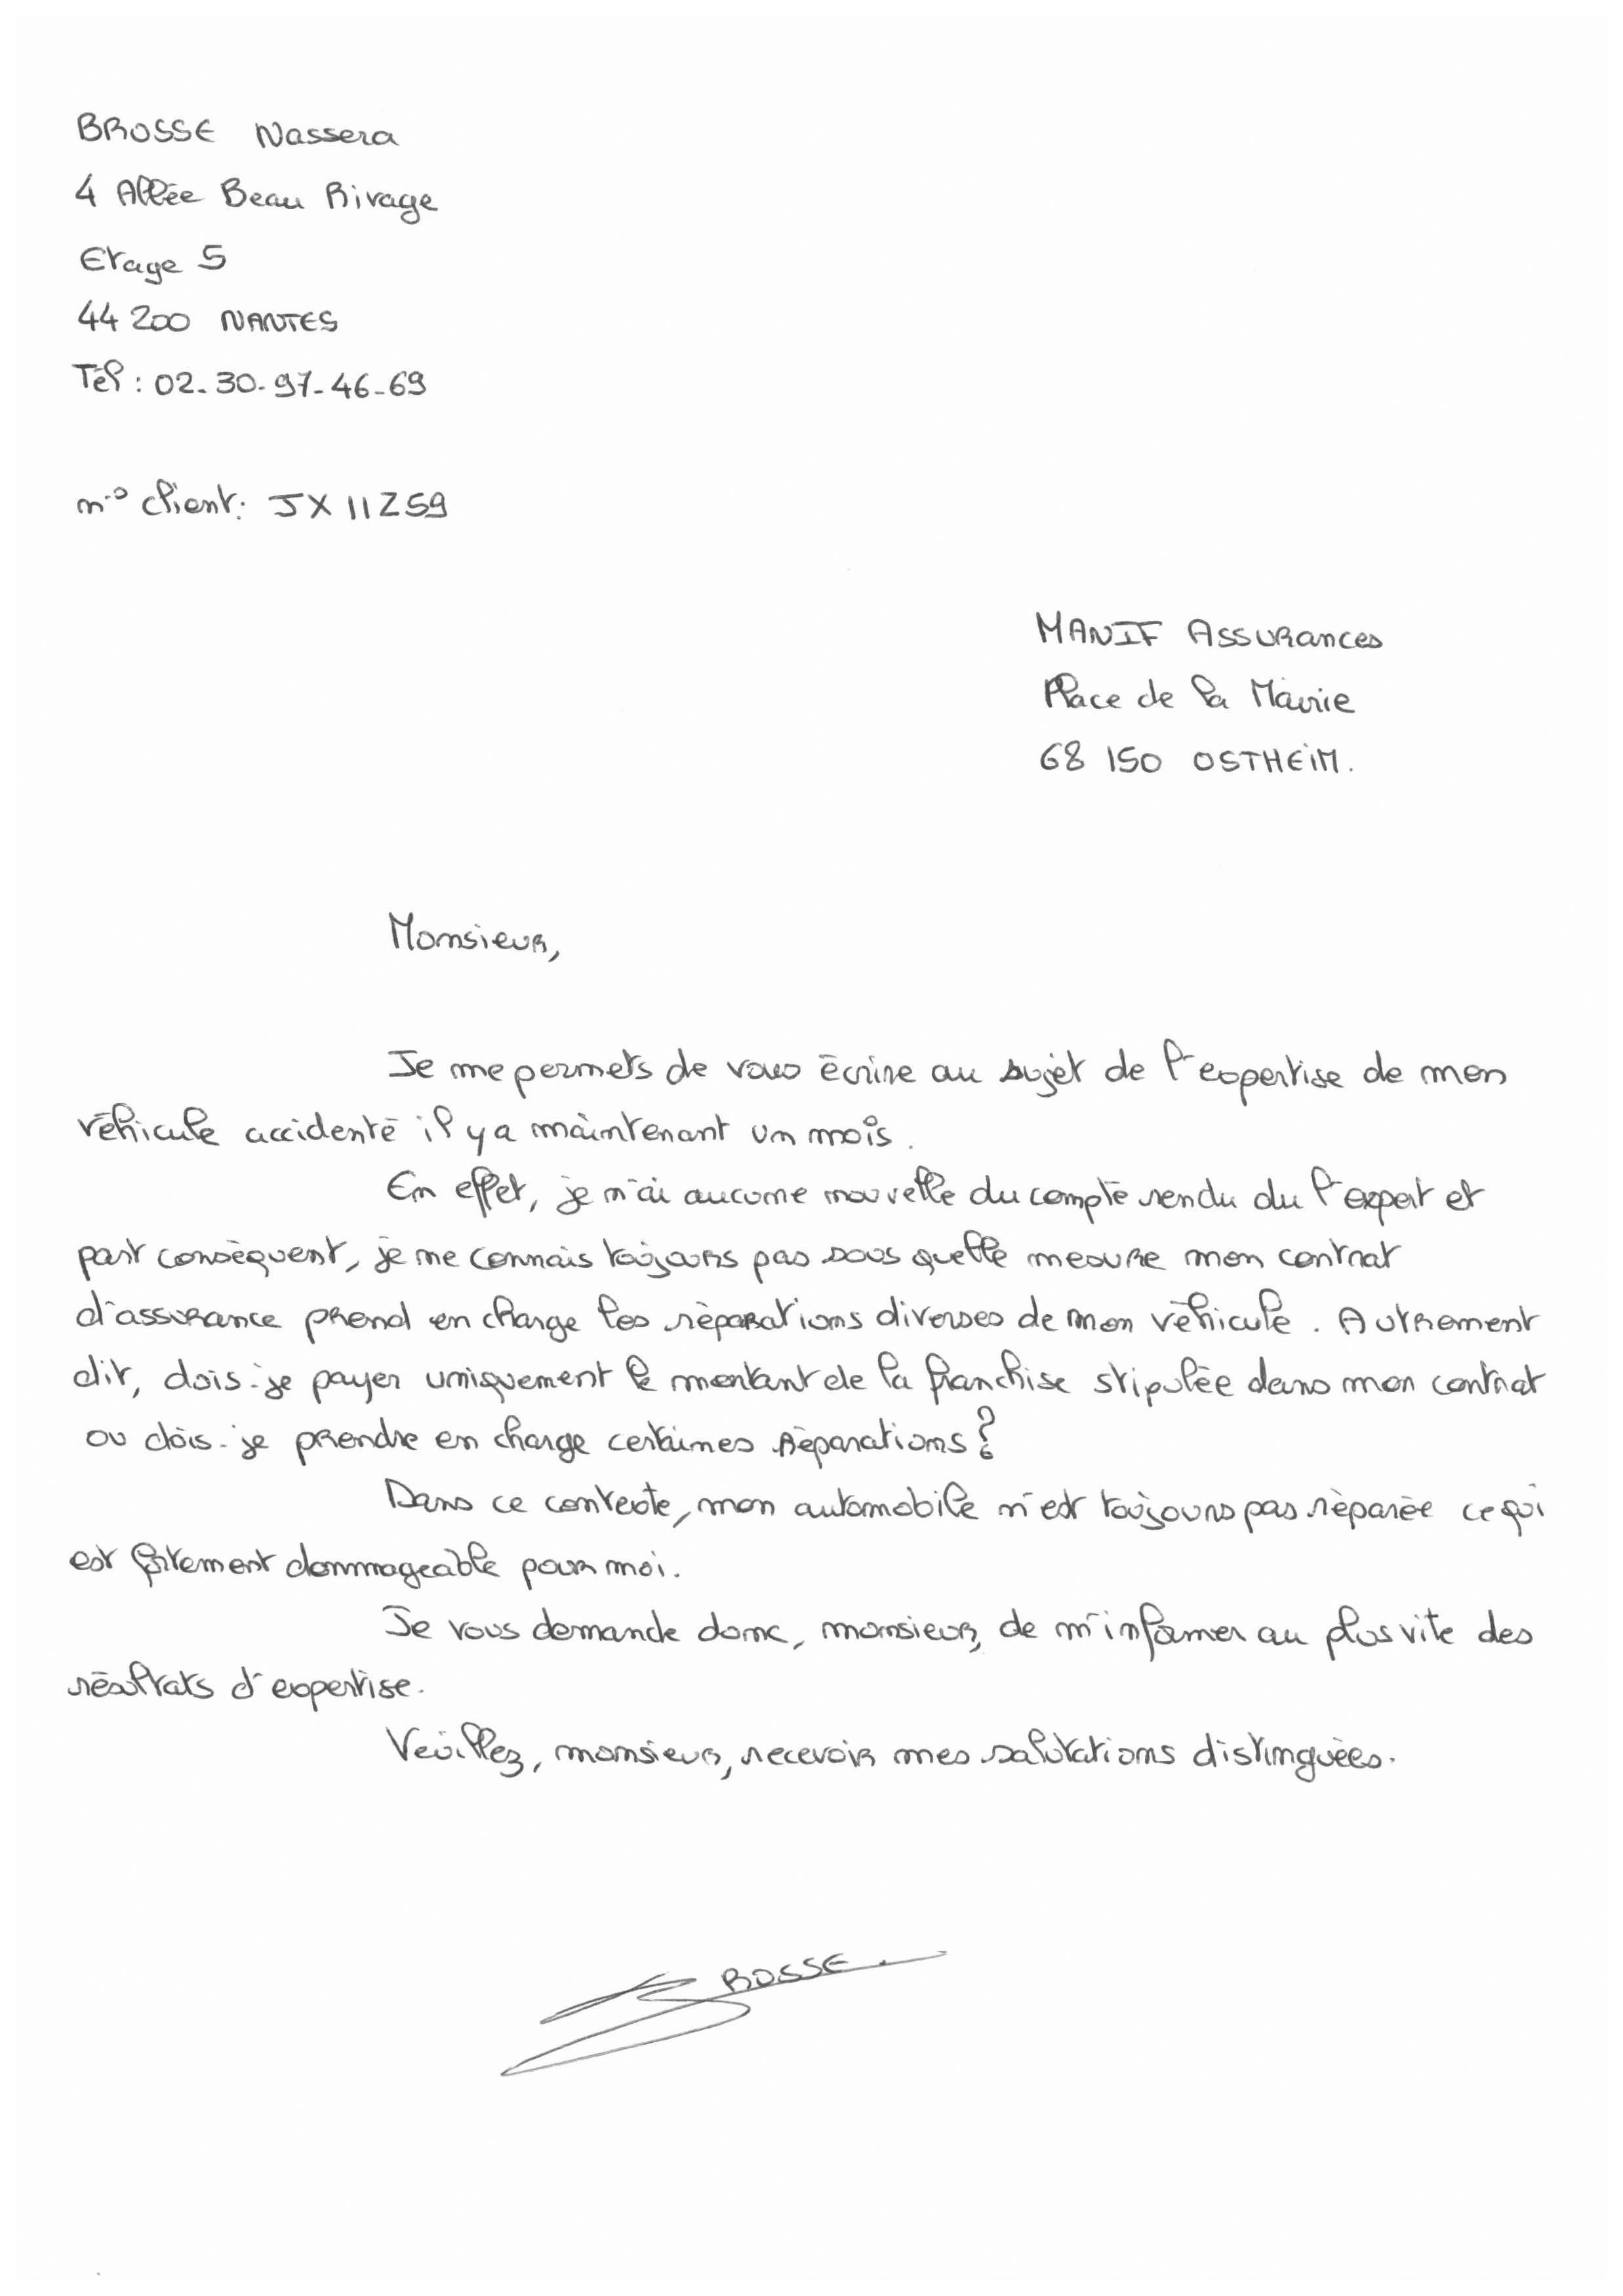 BROSSE Nassera
4 Allée Beau Rivage
Etage 5
44 200 NANTES
Tél : 02-30-97-46-69
n° client: JX11Z59
MANIF Assurances
Place de la Mairie
68 150 OSTHEIM.
Monsieur,
Je me permets de vous écrire au sujet de l'expertise de mon
véhicule accidenté il y a maintenant un mois.
En effet, je n'ai aucune nouvelle du compte rendu du l'expert et
part conséquent, je ne connais toujours pas sous quelle mesure mon contrat
d'assurance prend en charge les réparations diverses de mon véhicule. Autrement
dit, dois-je payer uniquement le montant de la franchise stipulée dans mon contrat
ou dois-je prendre en charge certaines réparations ?
Dans ce contexte, mon automobile n'est toujours pas réparée ce qui
est fortement dommageable pour moi.
Je vous demande donc, monsieur, de m'informer au plus vite des
résultats d'expertise.
Veuillez, monsieur, recevoir mes salutations distinguées.
BROSSE.